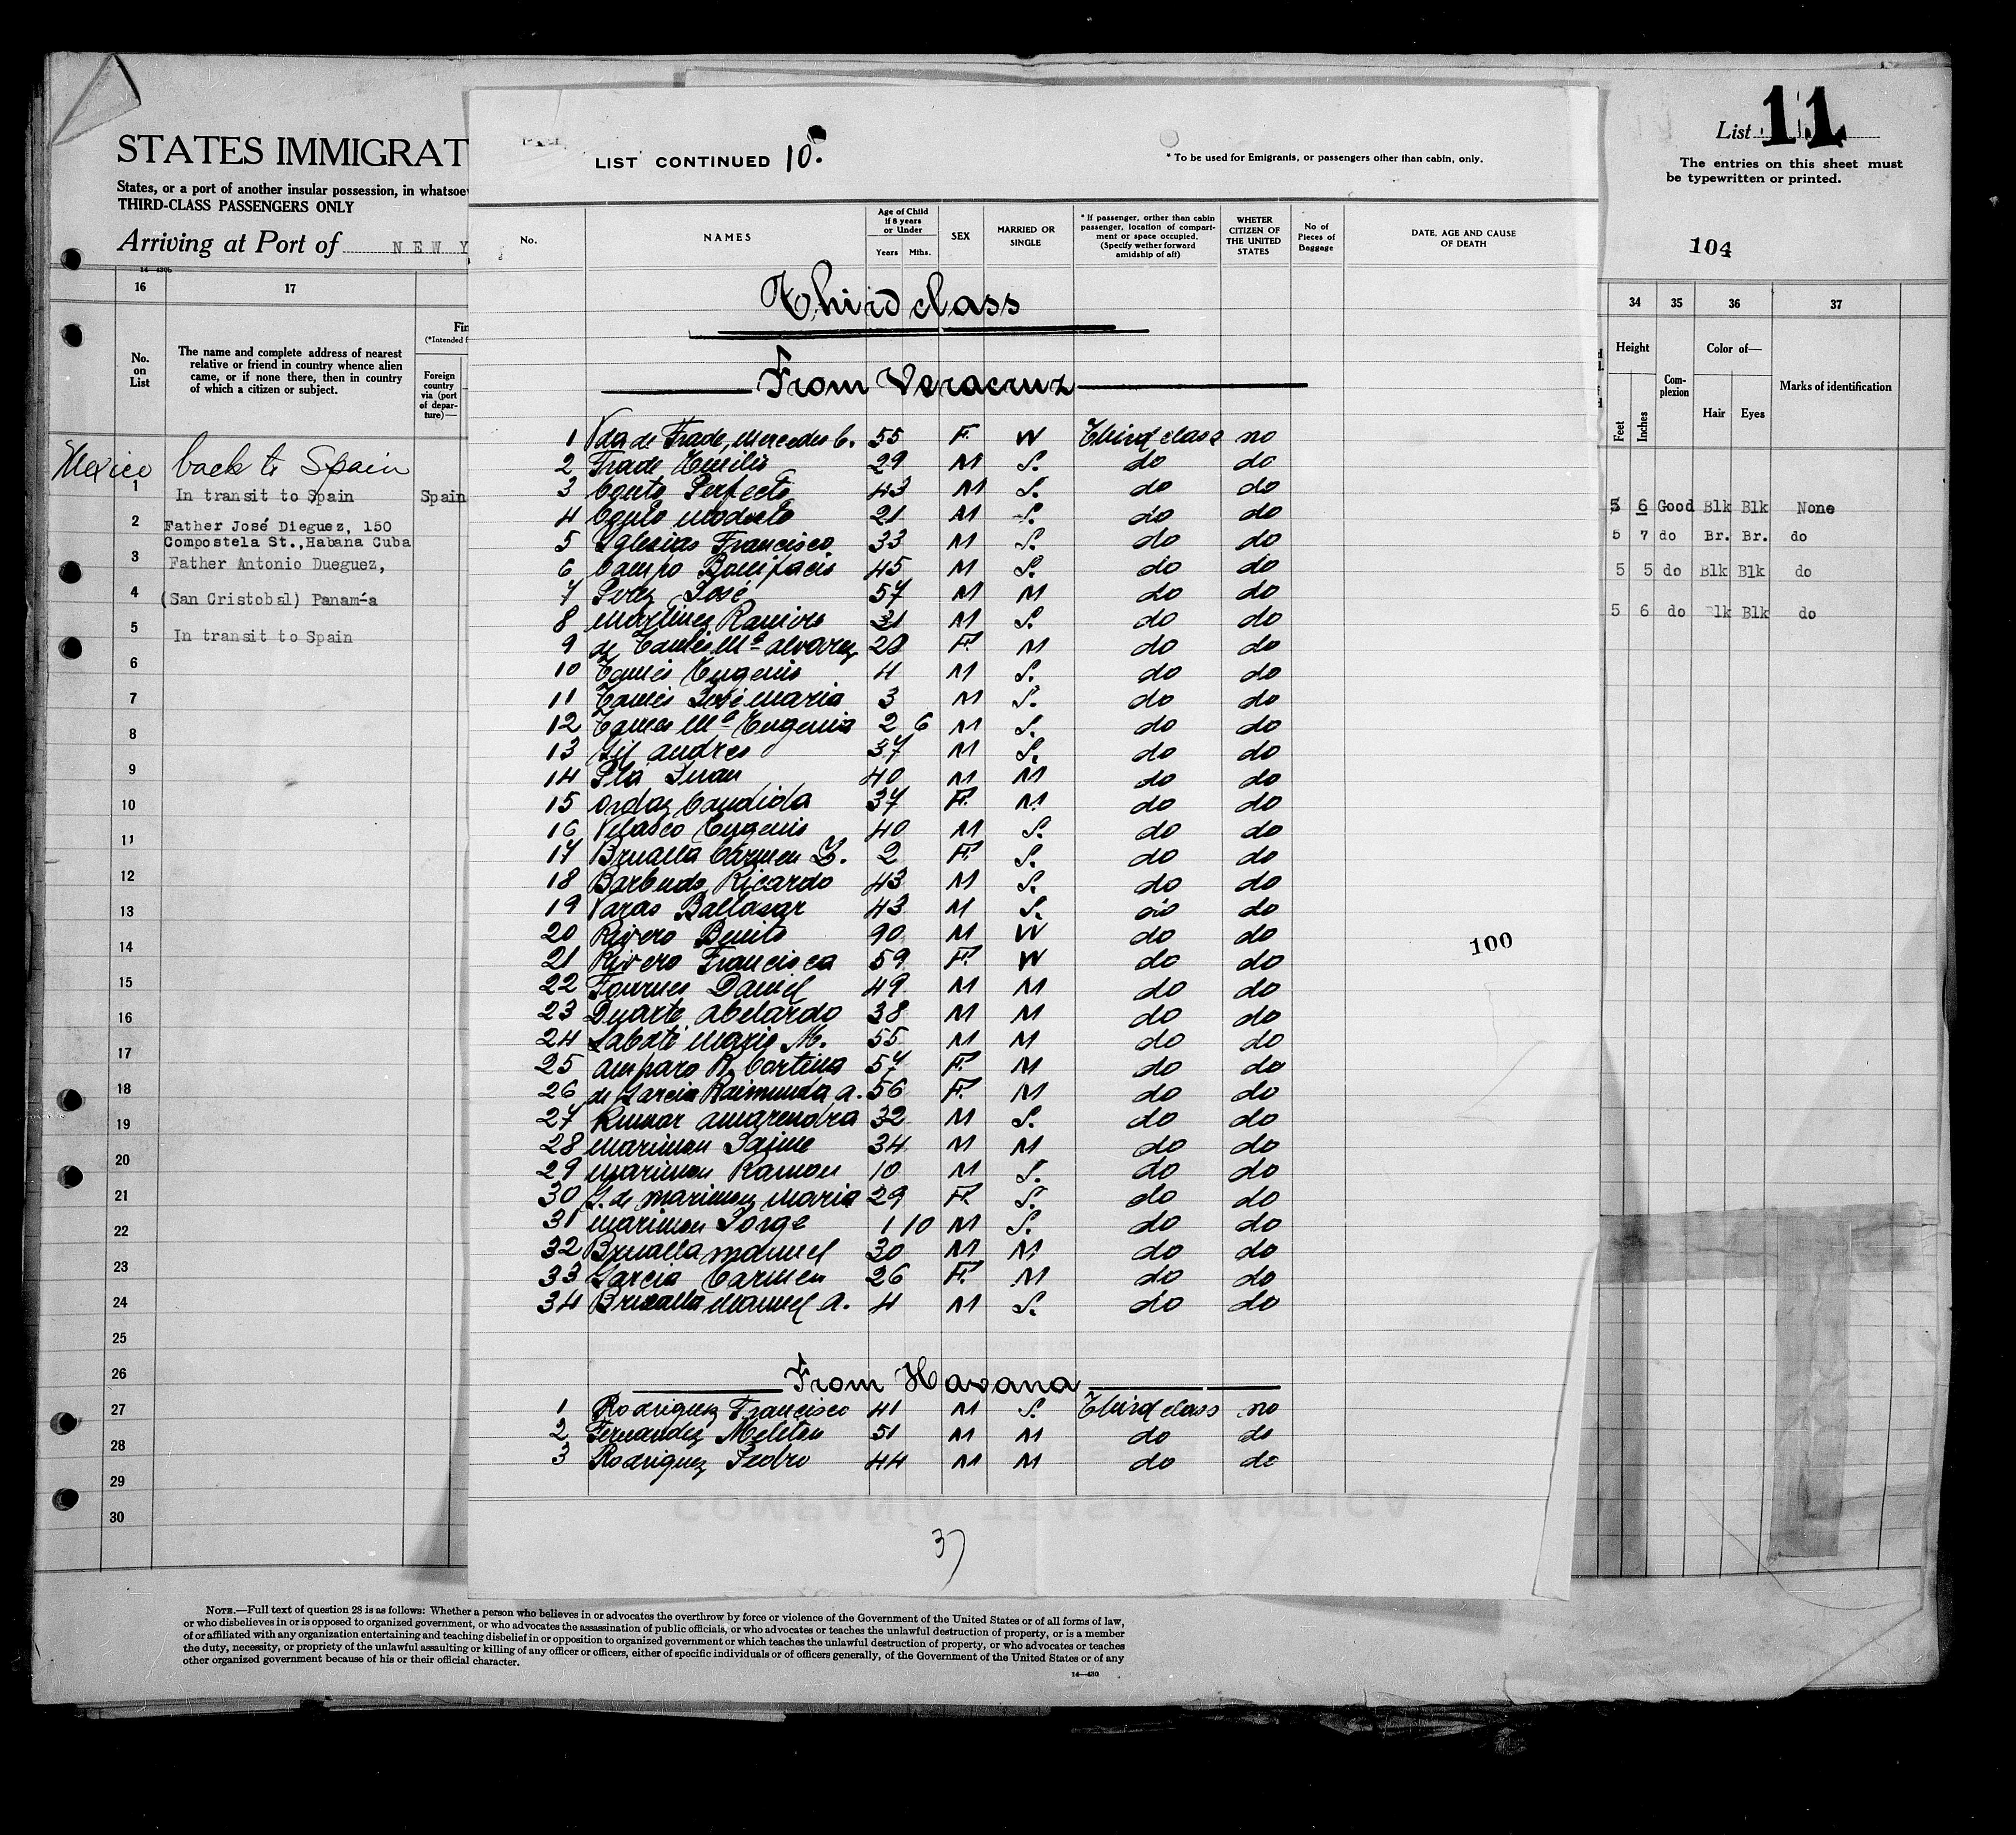 STATES IMMIGRAT
States, or a port of another insular possession, in whatsoev
THIRD-CLASS PASSENGERS ONLY
Arriving at Port of NEW Y
14—430b
16 17
No. on List
The name and complete address of nearest
relative or friend in country whence alien
came, or if none there, then in country
of which a citizen or subject.
Fin
(*Intended f
Foreign
country
via (port
of depar-
ture)—
Mexico back to Spain
1 In transit to Spain Spain
2 Father José Dieguez, 150
Compostela St., Habana Cuba
3 Father Antonio Dueguez,
4 (San Cristobal) Panamá
5 In transit to Spain
6
7
8
9
10
11
12
13
14
15
16
17
18
19
20
21
22
23
24
25
26
27
28
29
30
LIST CONTINUED 10.
* To be used for Emigrants, or passengers other than cabin, only.
No.
NAMES
Age of Child
if 8 years
or Under
Years Mths.
SEX
MARRIED OR
SINGLE
* If passenger, orither than cabin
passenger, location of compart-
ment or space occupied.
(Specify wether forward
amidship of aft)
WHETER
CITIZEN OF
THE UNITED
STATES
No of
Pieces of
Baggage
DATE, AGE AND CAUSE
OF DEATH
Third class
From Veracruz
1 Vda de Frade, Mercedes C. 55 F. W Third class no
2 Frade Emilio 29 M S. do do
3 Couto Perfecto 43 M S. do do
4 Couto Modesto 21 M S. do do
5 Iglesias Francisco 33 M S. do do
6 Campo Bonifacio 45 M S. do do
7 Perez José 57 M M do do
8 Martinez Ramiro 31 M S. do do
9 de Tamés Mª Alvarez 28 F. M do do
10 Tamés Eugenio 4 M S. do do
11 Tamés José Maria 3 M S. do do
12 Tames Mª Eugenia 2 6 M S. do do
13 Gil Andres 37 M S. do do
14 Pla Juan 40 M M do do
15 Ordaz Candida 37 F. M. do do
16 Velasco Eugenio 40 M S. do do
17 Brualla Carmen Z. 2 F. S. do do
18 Barbudo Ricardo 43 M S. do do
19 Varas Baltasar 43 M S. do do
20 Rivero Benito 90 M W do do
21 Rivero Francisca 59 F. W do do
22 Fournes Daniel 49 M M do do
23 Duarte Abelardo 38 M M do do
24 Sabaté Mario M. 55 M M do do
25 Amparo R. Cortina 57 F. M do do
26 de Garcia Raimunda A. 56 F. M do do
27 Kumar Amarendra 32 M S. do do
28 Marimon Jaime 34 M M do do
29 Marimon Ramon 10 M S. do do
30 G. de Marimon Maria 29 F. S. do do
31 Marimon Jorge 1 10 M S. do do
32 Brualla Manuel 30 M M do do
33 Garcia Carmen 26 F. M do do
34 Brualla Manuel A. 4 M S. do do
From Havana
1 Rodriguez Francisco 41 M S. Third class no
2 Fernandez Meliton 51 M M do do
3 Rodriguez Pedro 44 M M do do
37
100
List 11
The entries on this sheet must
be typewritten or printed.
104
34 35 36 37
Height
Feet Inches
Com-
plexion
Color of—
Hair Eyes
Marks of identification
5 6 Good Blk Blk None
5 7 do Br. Br. do
5 5 do Blk Blk do
5 6 do Blk Blk do
NOTE.—Full text of question 28 is as follows: Whether a person who believes in or advocates the overthrow by force or violence of the Government of the United States or of all forms of law,
or who disbelieves in or is opposed to organized government, or who advocates the assassination of public officials, or who advocates or teaches the unlawful destruction of property, or is a member
of or affiliated with any organization entertaining and teaching disbelief in or opposition to organized government or which teaches the unlawful destruction of property, or who advocates or teaches
the duty, necessity, or propriety of the unlawful assaulting or killing of any officer or officers, either of specific individuals or of officers generally, of the Government of the United States or of any
other organized government because of his or their official character.
14—430